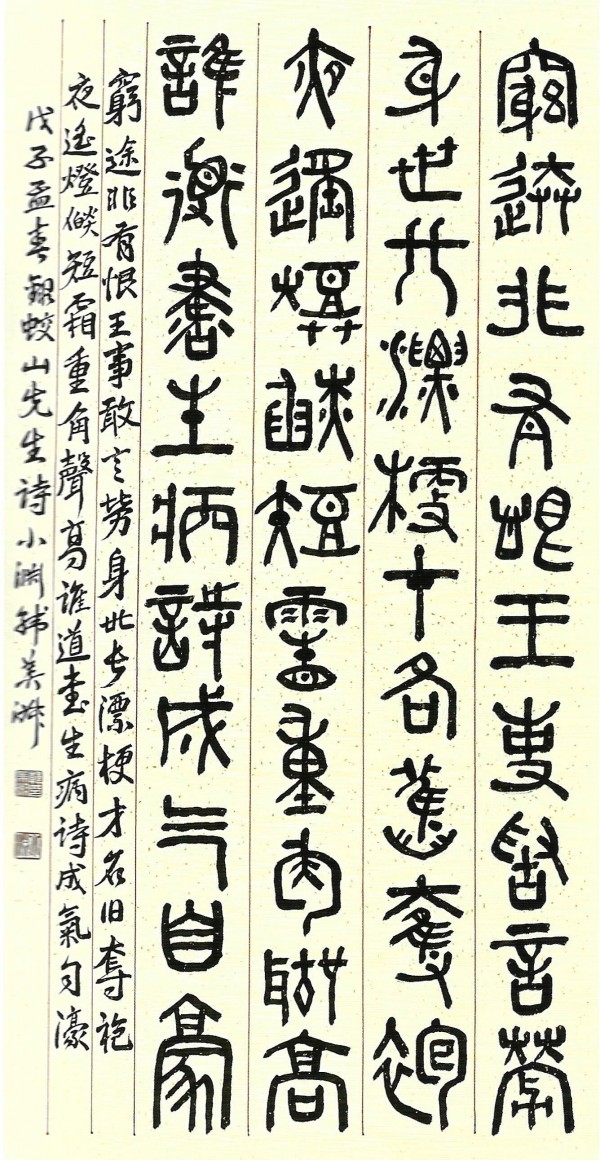 窮途非有恨王事敢言勞
身世漂梗才名舊奪袍
夜遥燈燄短霜重角聲高
誰道書生病詩成气自豪
窮途非有恨王事敢言勞身世漂梗才名旧奪袍
夜遥燈燄短霜重角聲高誰道書生病詩成氣自濠
戊子孟春録蛟山先生诗小渊韩美